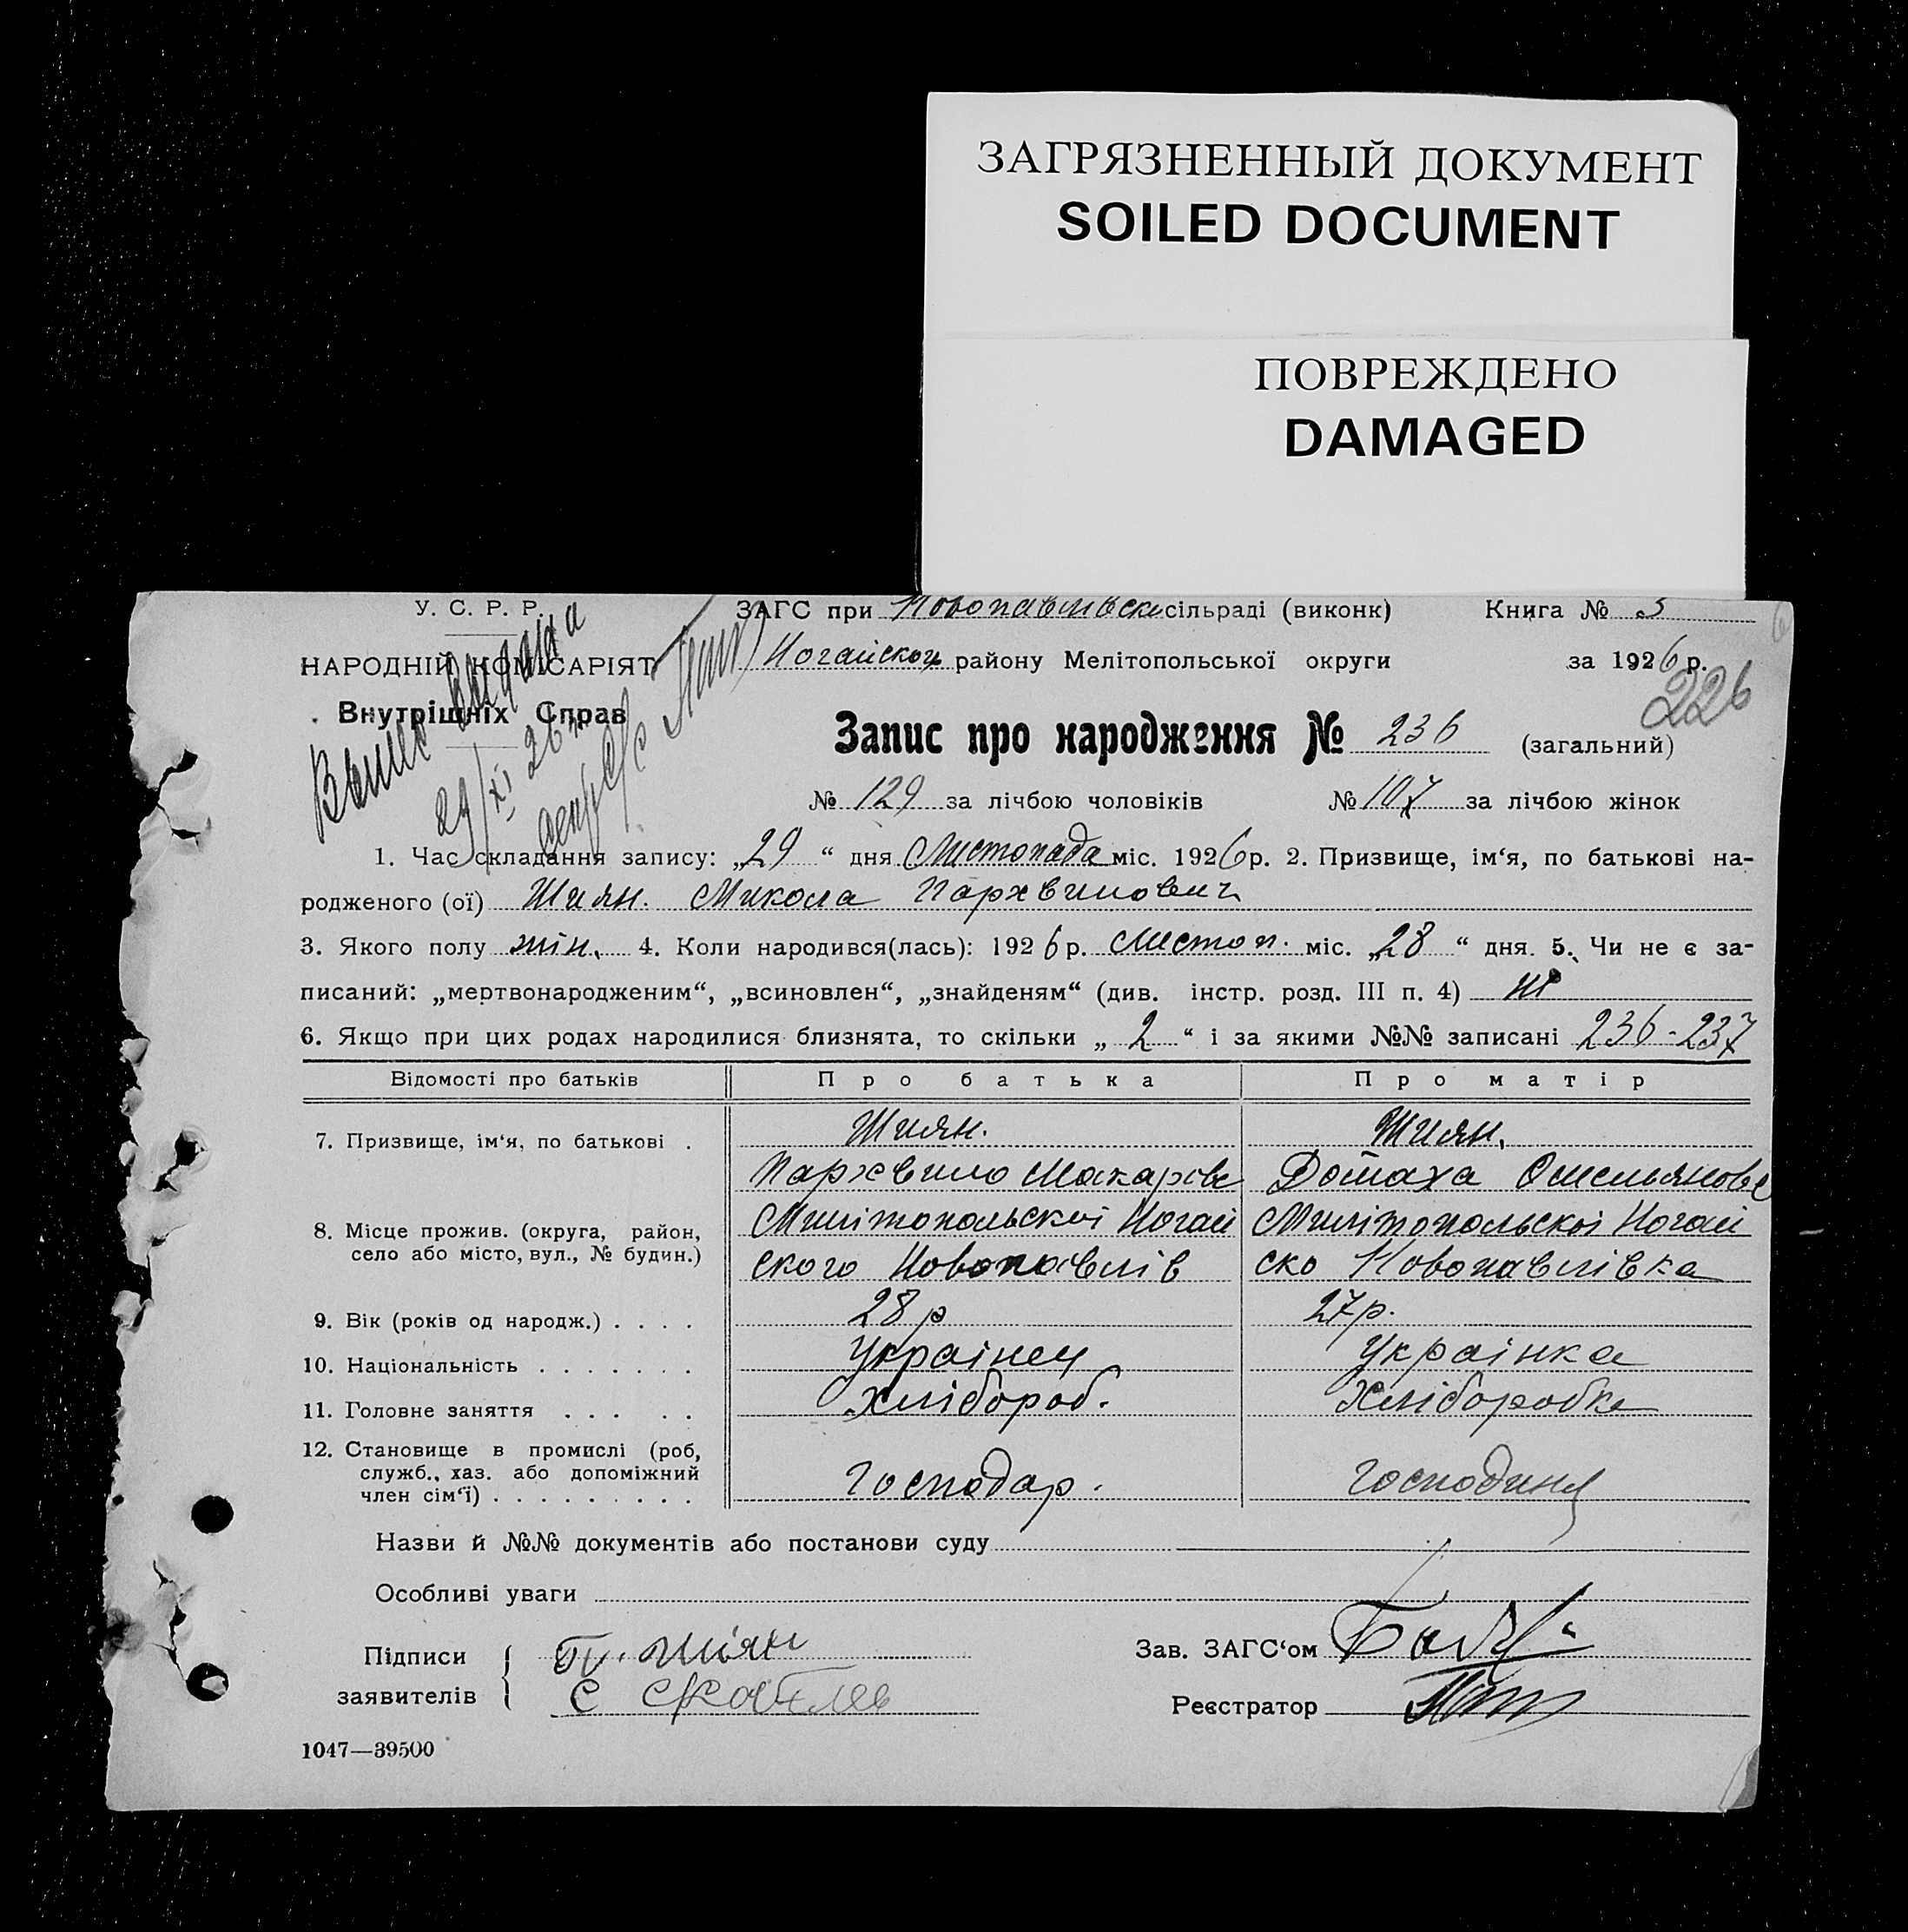 ЗАГРЯЗНЕННЫЙ ДОКУМЕНТ
SOILED DOCUMENT
ПОВРЕЖДЕНО
DAMAGED
У. С. Р. Р.
НАРОДНІЙ КОМІСАРІЯТ
Внутрішніх Справ
29/XI 26
ЗАГС при Новопавлівськ сільраді (виконк) Книга № 3
Ногайском району Мелітопольської округи за 1926 р.
226
Запис про народження № 236 (загальний)
№ 129 за лічбою чоловіків № 107 за лічбою жінок
1. Час складання запису: „29“ дня Листопада міс. 1926 р. 2. Призвище, ім‘я, по батькові на-
родженого (ої) Шиян. Микола Пархвилович
3. Якого полу 4. Коли народився(лась): 1926 р. Листоп. міс. „28“ дня. 5. Чи не є за-
писаний: „мертвонародженим“, „всиновлен“, „знайденям“ (див. інстр. розд. III п. 4) ні
6. Якщо при цих родах народилися близнята, то скільки „2“ і за якими №№ записані 236-237
Відомості про батьків Про батька Про матір
7. Призвище, ім‘я, по батькові . Шиян. Шиян.
Пархвило Макарів Домаха Омельянова
8. Місце прожив. (округа, район, село або місто, вул., № будин.) Милітопольскої Ногай Милітопольскої Ногай
ского Новопавлів ско Новопавлівка
9. Вік (років од народж.) . . . . 28 р 27 р.
10. Національність . . . . . . . Українец Українка
11. Головне заняття . . . . . Хлібороб. Хліборобка
12. Становище в промислі (роб, служб., хаз. або допоміжний член сім‘ї) . . . . . . . . . Господар. Господиня
Назви й №№ документів або постанови суду
Особливі уваги
Підписи заявителів Шиян
Зав. ЗАГС‘ом
Реєстратор
1047—39500